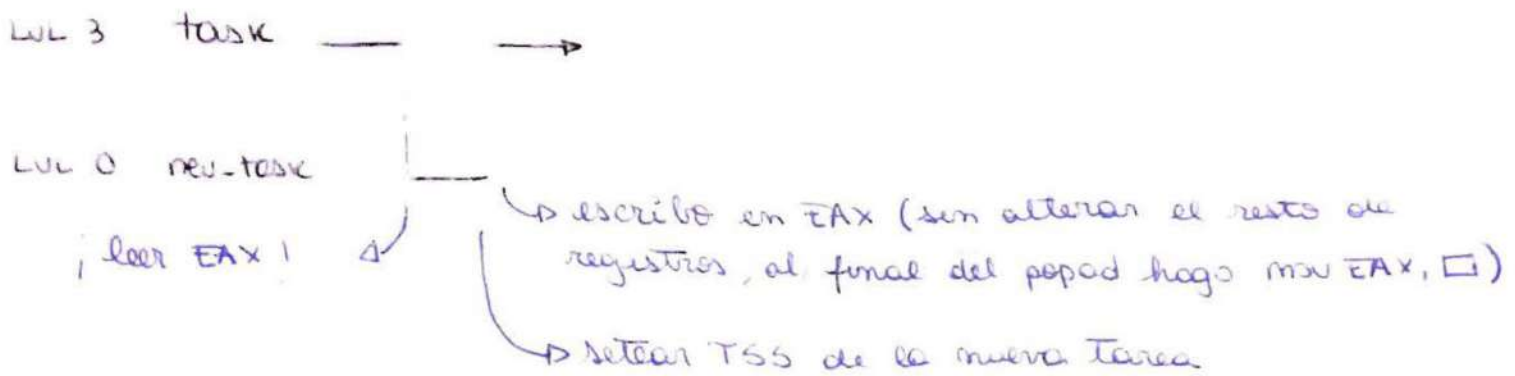 LVL 3 task
LVL 0 new-task
escribo en EAX (sin alterar el resto de
¡leer EAX!
registros, al final del popad hago mov EAX, □)
setear TSS de la nueva tarea